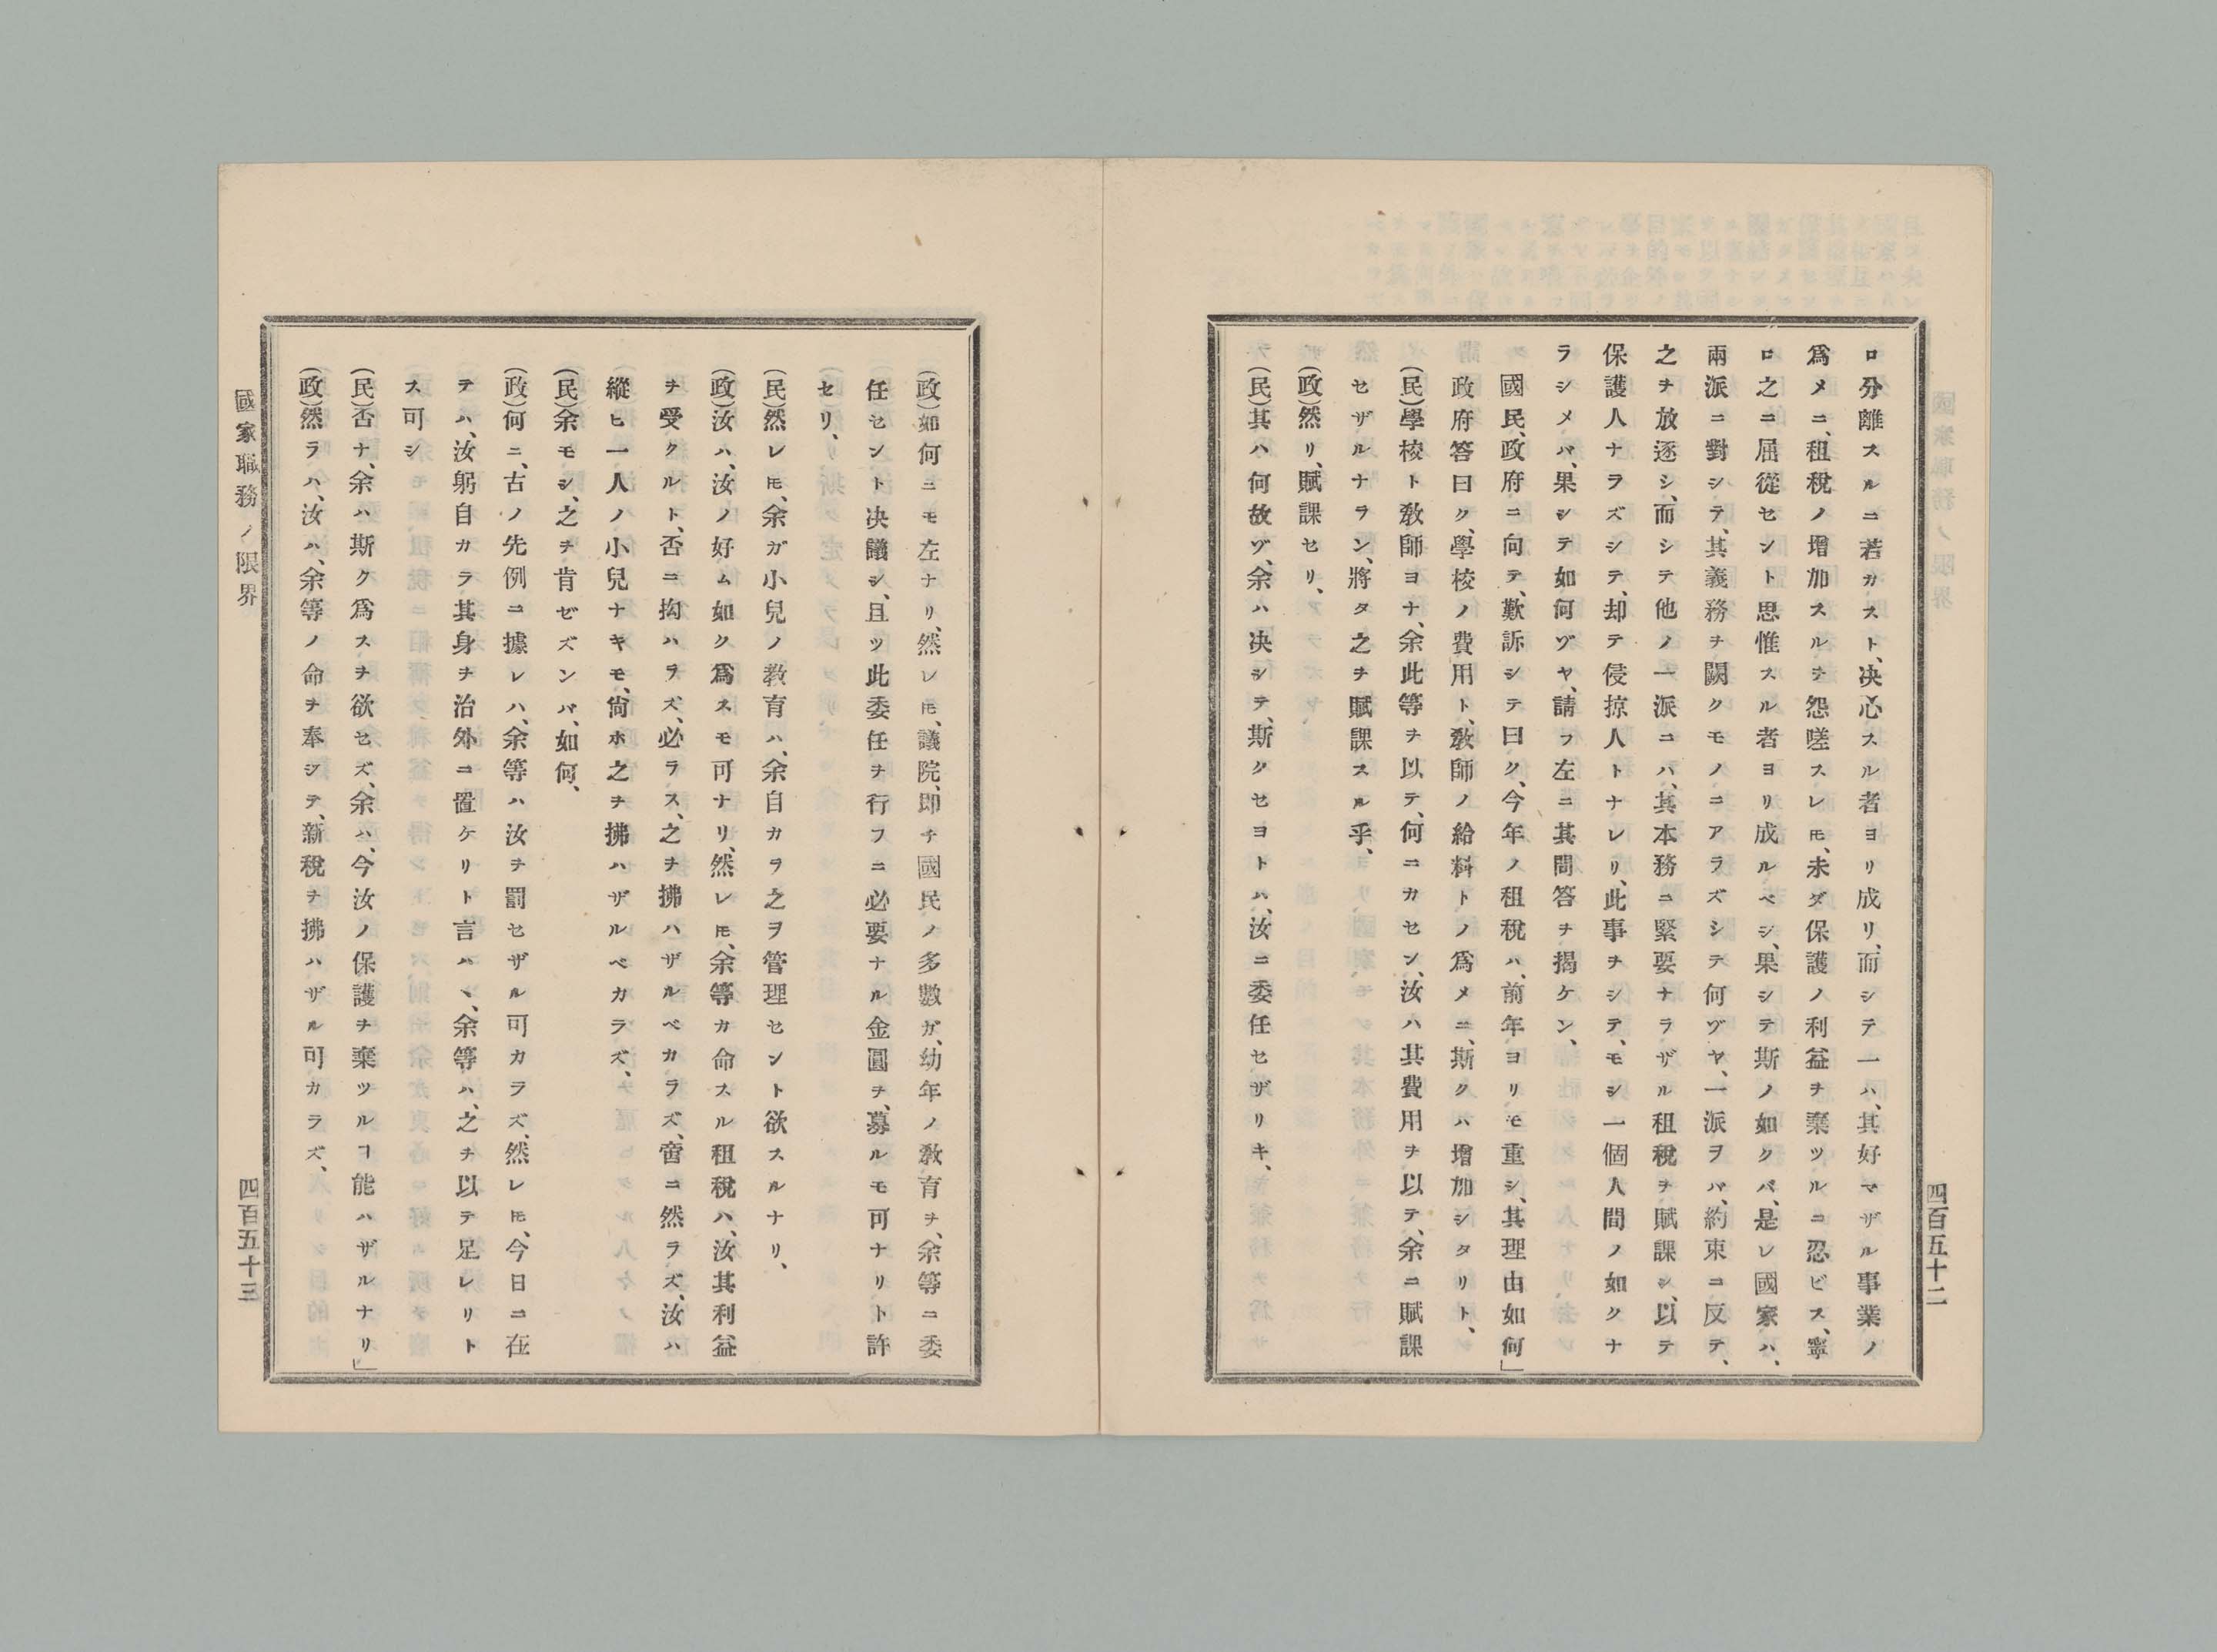 ロ分離スルニ若カスト、决心スル者ヨリ成リ、而シテ一ハ、其好マザル事業ノ
爲メニ、租稅ノ增加スルヲ怨嗟スレ𪜈、未ダ保護ノ利益ヲ棄ツルニ忍ビス、寧
ロ之ニ屈從セント思惟スル者ヨリ成ルベシ、果シテ斯ノ如クバ、是レ國家ハ、
兩派ニ對シテ、其義務ヲ闕クモノニアラズシテ何ゾヤ、一派ヲバ、約束ニ反テ、
之ヲ放逐シ、而シテ他ノ一派ニハ、其本務ニ緊要ナラザル租稅ヲ賦課シ、以テ
保護人ナラズシテ、却テ侵掠人トナレリ、此事ヲシテ、モシ一個人間ノ如クナ
ラシメバ、果シテ如何ゾヤ、請フ左ニ其問答ヲ揭ケン、
國民、政府ニ向テ、歎訴シテ曰ク、今年ノ租稅ハ、前年ヨリモ重シ、其理由如何」
政府答曰ク、學校ノ費用ト、敎師ノ給料トノ爲メニ、斯クハ增加シタリト、
(民)學校ト敎師ヨナ、余此等ヲ以テ、何ニカセン、汝ハ其費用ヲ以テ、余ニ賦課
セザルナラン、將タ之ヲ賦課スル乎、
(政)然リ、賦課セリ、
(民)其ハ何故ゾ、余ハ决シテ、斯クセヨトハ、汝ニ委任セザリキ、
四百五十二
(政)如何ニモ左ナリ、然レ𪜈、議院、即チ國民ノ多數ガ、幼年ノ敎育ヲ、余等ニ委
任セント决議シ、且ツ此委任ヲ行フニ必要ナル金圓ヲ、募ルモ可ナリト許
セリ、
(民)然レ𪜈、余ガ小兒ノ敎育ハ、余自カラ之ヲ管理セント欲スルナリ、
(政)汝ハ、汝ノ好ム如ク爲スモ可ナリ、然レ𪜈、余等カ命スル租稅ハ、汝其利益
ヲ受クルト、否ニ拘ハラズ、必ラス、之ヲ拂ハザルベカラズ、啻ニ然ラズ、汝ハ
縱ヒ一人ノ小兒ナキモ、尙ホ之ヲ拂ハザルベカラズ、
(民)余モシ、之ヲ肯ゼズンバ、如何、
(政)何ニ、古ノ先例ニ據レハ、余等ハ汝ヲ罰セザル可カラズ、然レ𪜈、今日ニ在
テハ、汝躬自カラ其身ヲ治外ニ置ケリト言ハヽ、余等ハ、之ヲ以テ足レリト
ス可シ
(民)否ナ、余ハ斯ク爲スヲ欲セズ、余ハ、今汝ノ保護ヲ棄ツルヿ能ハザルナリ」
(政)然ラハ、汝ハ、余等ノ命ヲ奉シテ、新稅ヲ拂ハザル可カラズ、
國家職務ノ限界
四百五十三